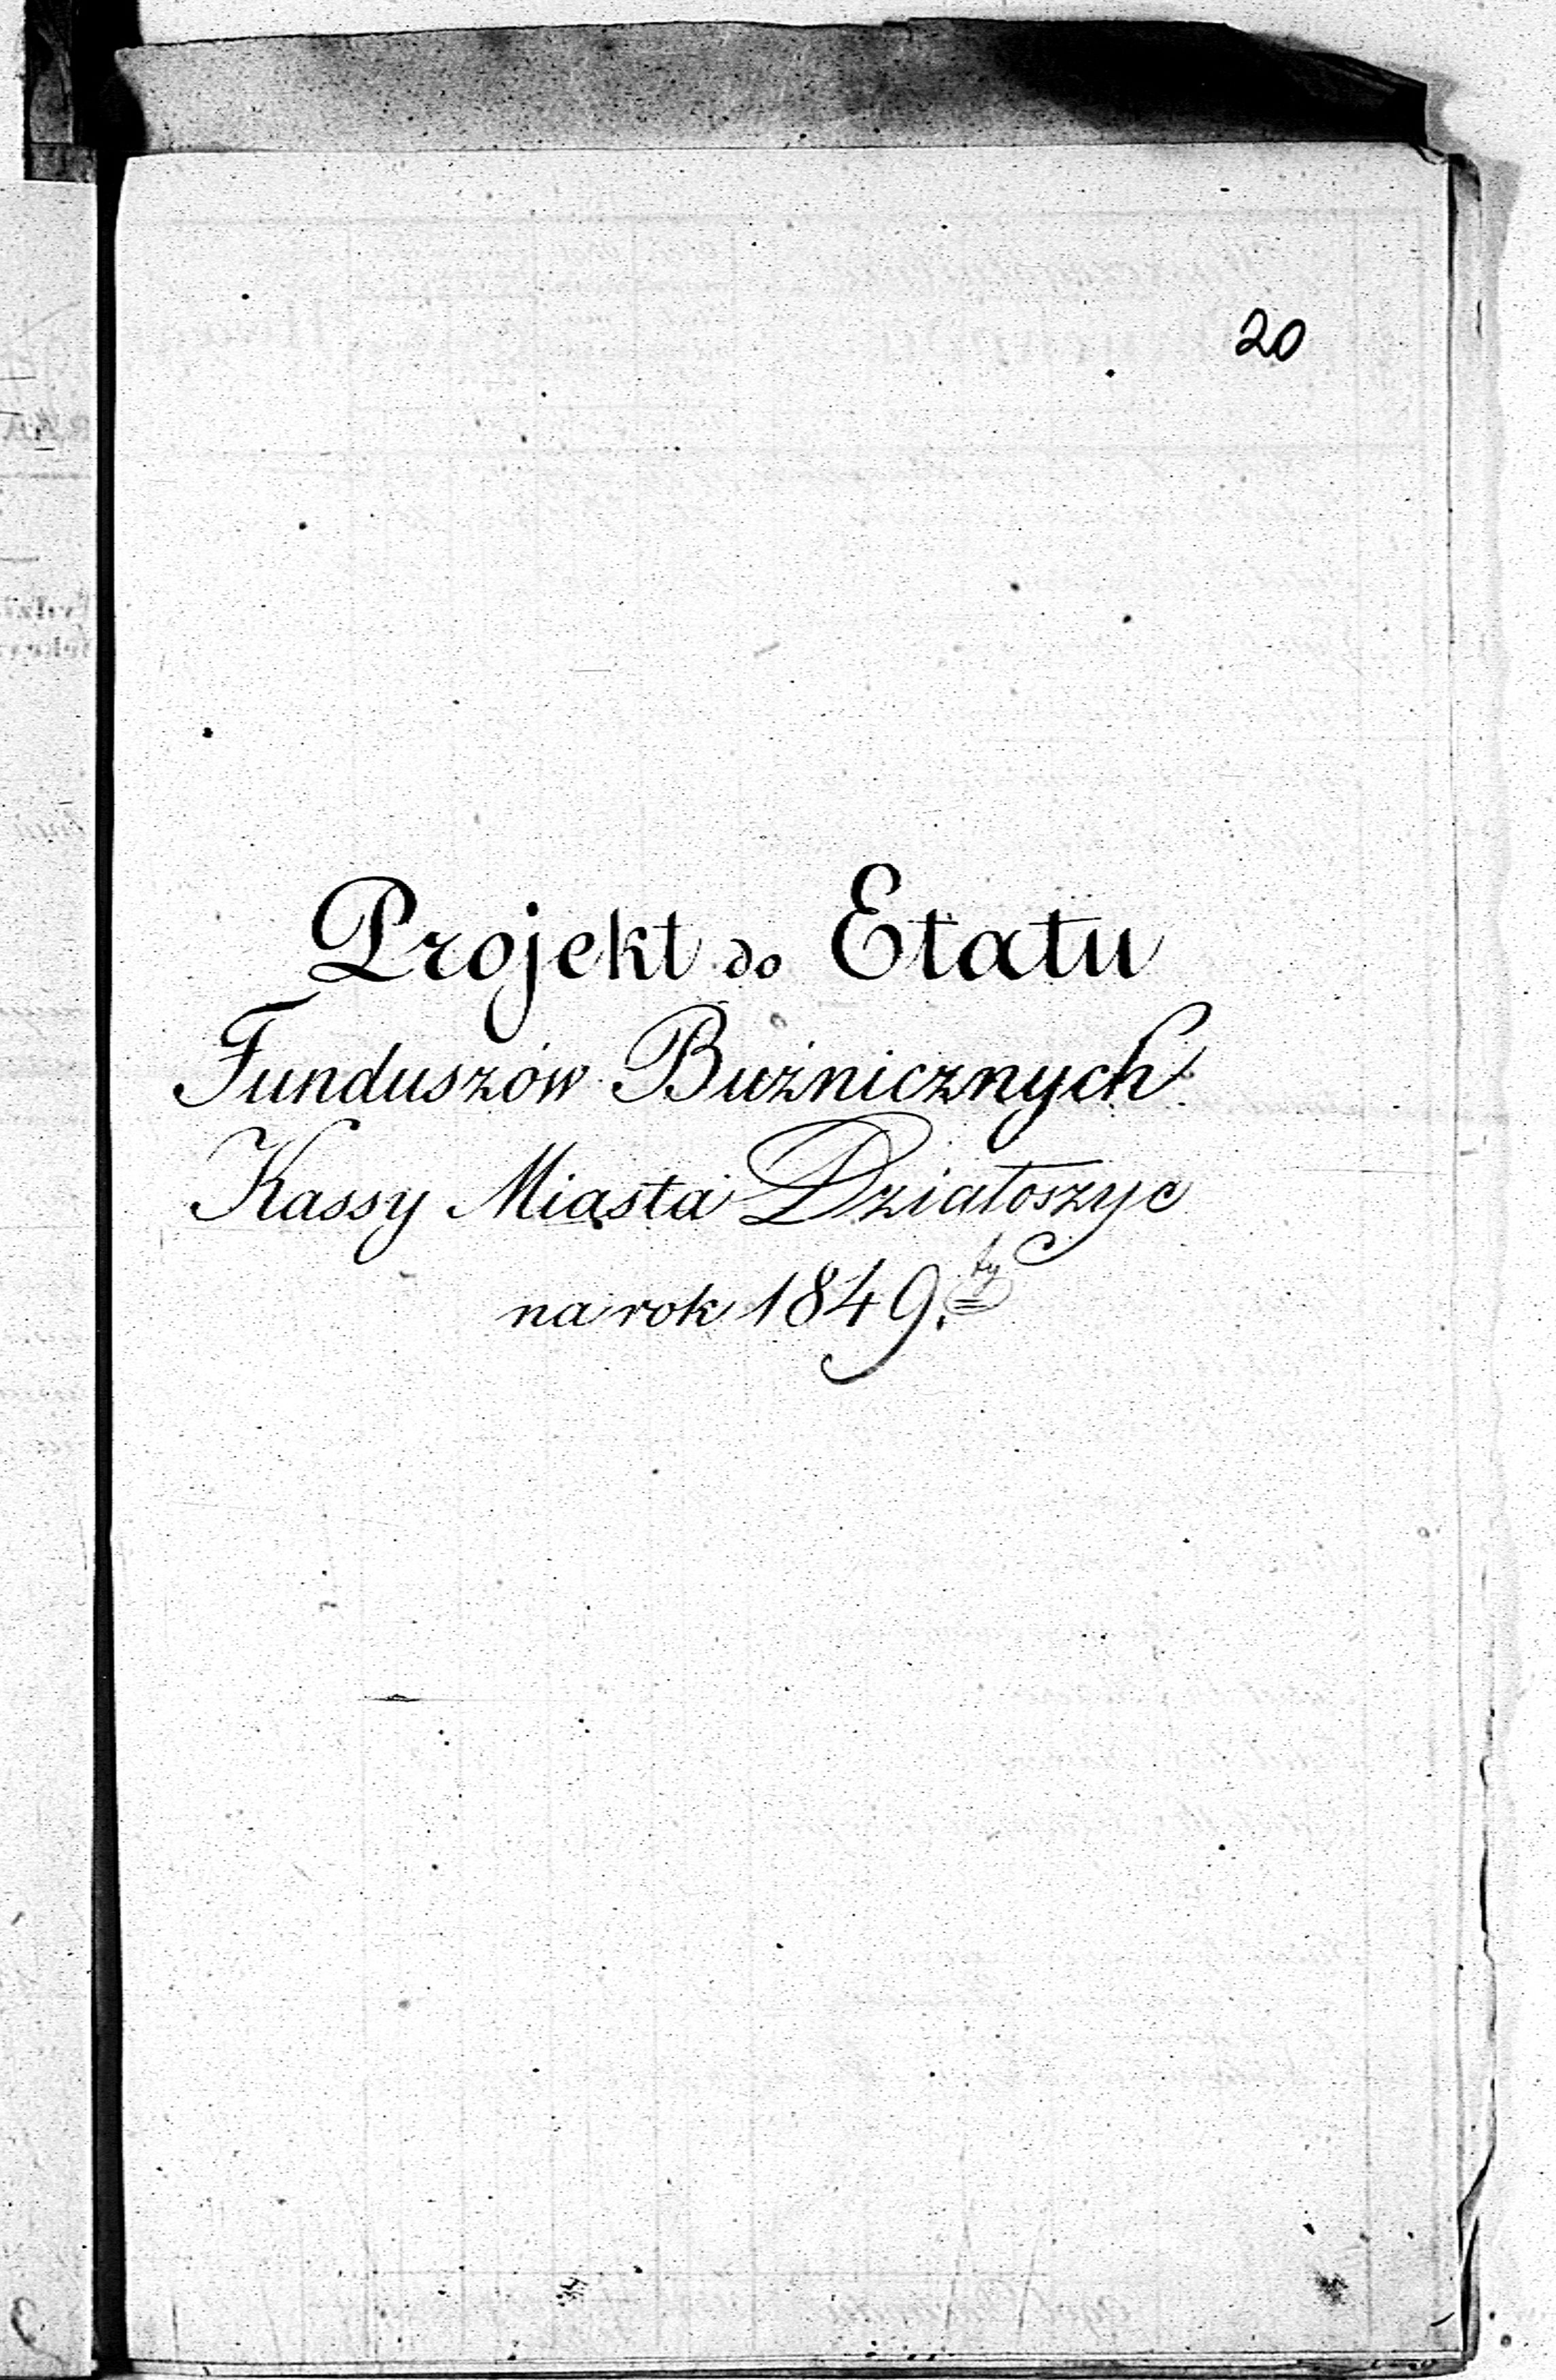 20
Projekt do Etatu
Funduszów Bużnicznych
Kassy Miasta Działoszyc
na rok 1849.ty